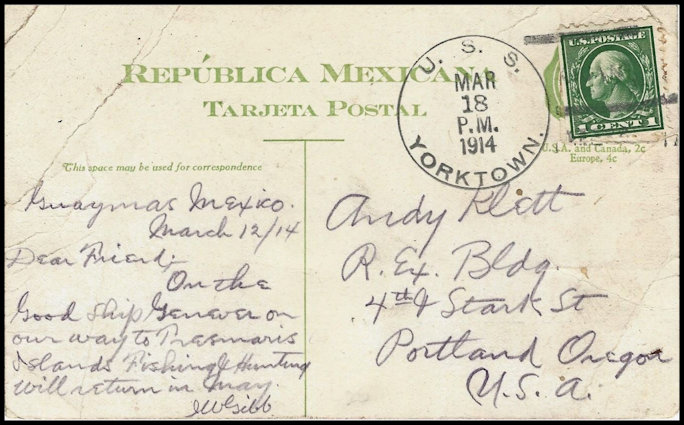 REPÚBLICA MEXICANA
TARJETA POSTAL
U. S. S.
MAR
18
P.M.
1914
YORKTOWN.
U.S. POSTAGE
1 CENT 1
U.S.A. and Canada, 2c
Europe, 4c
This space may be used for correspondence
Guaymas Mexico.
March 12/14
Dear Friend;
On the
Good Ship Genever on
our way to Tresmaris
Islands Fishing & Hunting
will return in May.
JW Gibb
Andy Klett
R. Ex. Bldg.
4th & Stark St
Portland Oregon
U.S.A.